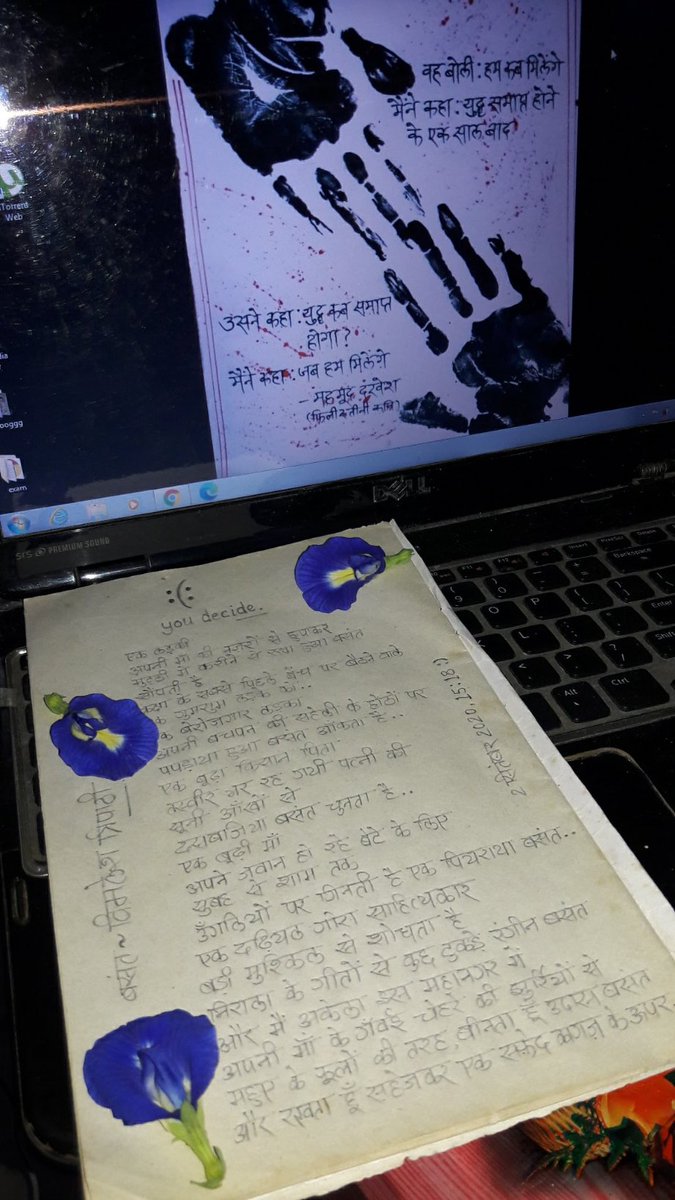 वह बोली : हम कब मिलेंगे
मैंने कहा : युद्ध समाप्त होने
के एक साल बाद
उसने कहा : युद्ध कब समाप्त
होगा?
मैंने कहा : जब हम मिलेंगे
- महमूद दरवेश
(फ़िलीस्तीनी कवि)
Torrent
Web
ooggg
exam
DELL
SRS PREMIUM SOUND
:(
you decide.
एक लड़की
अपनी माँ की नजरों से छुपाकर
मुट्ठी में करीने से रखा हुआ बसंत
सौंपती है
कक्षा के सबसे पिछले बेंच पर बैठने वाले
गुमसुम लड़के को..
बेरोजगार लड़का
अपनी बचपन की सहेली के होठों पर
पपड़ाया हुआ बसंत आंकता है..
एक बूढ़ा किसान पिता
तस्वीर भर रह गयी पत्नी की
सूनी आँखों से
दरवाजिया बसंत चुनता है..
एक बूढ़ी माँ
अपने जवान हो रहे बेटे के लिए
सुबह से शाम तक
उँगलियों पर गिनती है एक पियराया बसंत..
एक दढ़ियल गोरा साहित्यकार
बड़ी मुश्किल से शोधता है
निराला के गीतों से कुछ टुकड़े रंगीन बसंत
और मैं अकेला इस महानगर में
अपनी माँ के गंवई चेहरे की झुर्रियों से
महुए के फूलों की तरह, बीनता हूँ उदास बसंत
और रखता हूँ सहेजकर एक सफ़ेद कागज़ के ऊपर..
बसंत ~ विमलेश त्रिपाठी
2 सितम्बर 2020, 15:18 :)
Delete
Backspace
Enter
Shift
Ctrl
Alt